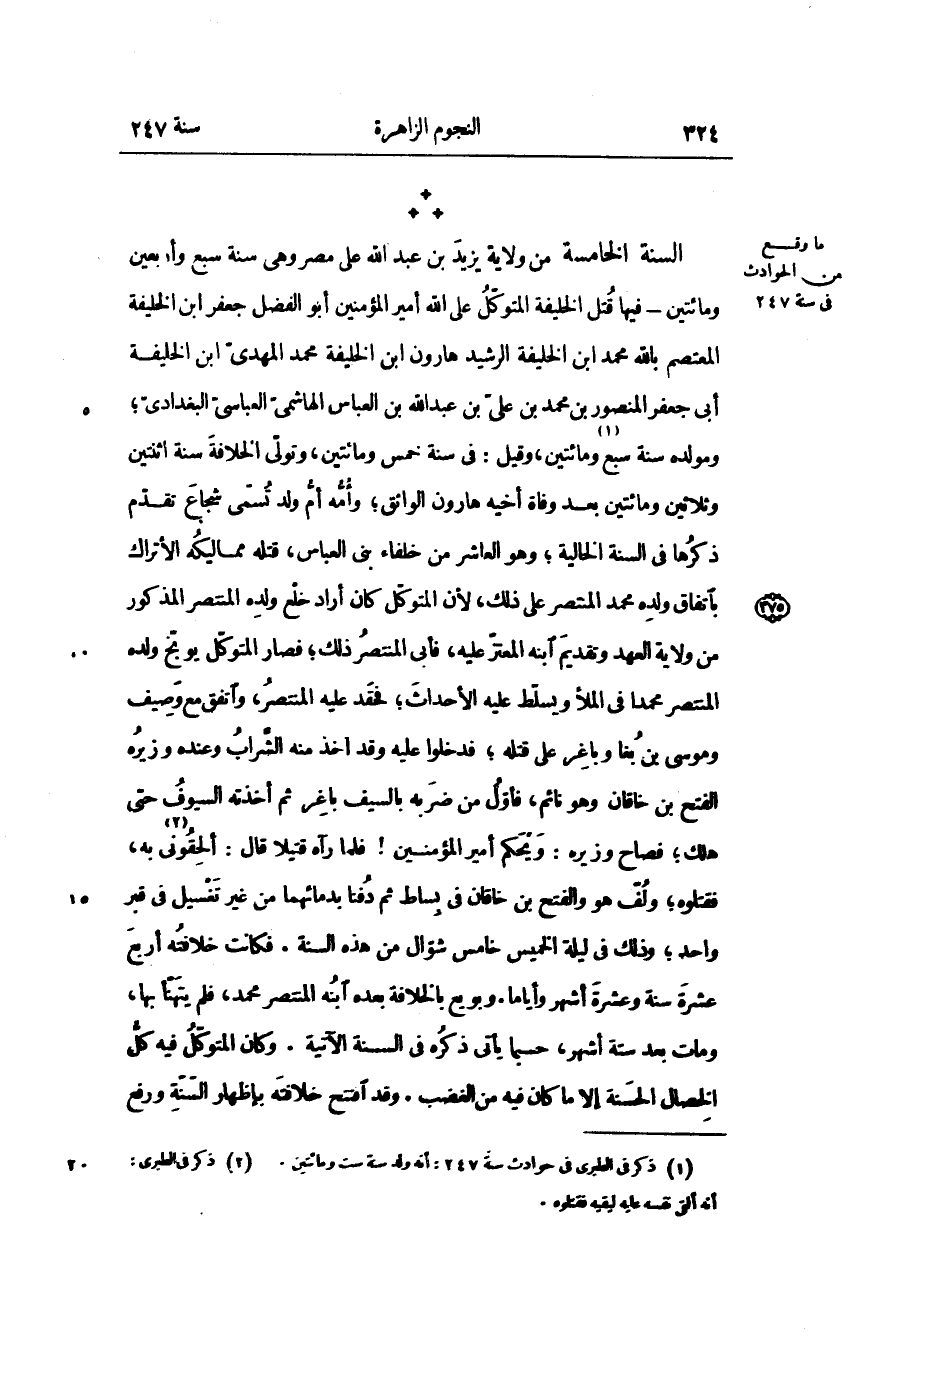 ٣٢٤ النجوم الزاهرة سنة ٢٤٧
ما وقع
من الحوادث
فى سنة ٢٤٧
السنة الخامسة من ولاية يزيدَ بن عبد الله على مصر وهى سنة سبع وأربعين
ومائتين — فيها قُتل الخليفة المتوكّلُ على الله أمير المؤمنين أبو الفضل جعفر ابن الخليفة
المعتصم بالله محمد ابن الخليفة الرشيد هارون ابن الخليفة محمد المهدىّ ابن الخليفة
أبى جعفر المنصور بن محمد بن علىّ بن عبدالله بن العباس الهاشمىّ العباسىّ البغدادىّ؛ ٥
ومولده سنة سبع (١) ومائتين، وقيل : فى سنة خمس ومائتين، وتولّى الخلافةَ سنة اثنتين
وثلاثين ومائتين بعد وفاة أخيه هارون الواثق؛ وأُمُّه أمُّ ولد تُسمّى شجاعَ تقدّم
ذكرُها فى السنة الخالية ؛ وهو العاشر من خلفاء بنى العباس، قتله مماليكُه الأتراك
بآتفاق ولدِه محمد المنتصر على ذلك، لأن المتوكّل كان أراد خلْع ولدِه المنتصر المذكور ٣٧٥
من ولاية العهد وتقديمَ آبنه المعتزّ عليه، فأبى المنتصرُ ذلك؛ فصار المتوكّل يوبّخ ولده
المنتصر محمدا فى الملأ ويسلّط عليه الأحداثَ؛ فحَقَد عليه المنتصرُ، وآتفق مع وَصِيف
وموسى بن بُغا وباغِر على قتله ؛ فدخلوا عليه وقد اخذ منه الشَّرابُ وعنده وزيرُه
الفتح بن خاقان وهو نائم، فأوّلُ من ضرَبه بالسيف باغِر ثم أخذته السيوفُ حتى
هلك؛ فصاح وزيره : وَيْحَكم أمير المؤمنين ! فلما رآه قتيلا قال : ألحِقُونى (٢) به،
فقتلوه؛ ولُفّ هو والفتح بن خاقان فى بِساط ثم دُفنا بدمائهما من غير تَغْسيل فى قبر ١٥
واحد ؛ وذلك فى ليلة الخميس خامس شوّال من هذه السنة . فكانت خلافتُه أربعَ
عشرةَ سنة وعشرةَ أشهر وأياما. وبويع بالخلافة بعده آبنُه المنتصر محمد، فلم يتهَنَّأ بها،
ومات بعد ستة أشهر، حسبما يأتى ذكرُه فى السنة الآتية . وكان المتوكّلُ فيه كلُّ
الخِصال الحَسَنة إلا ما كان فيه من الغضب . وقد آفتتح خلافتَه بإظهار السُّنّةِ ورفع
(١) ذكر فى الطبرى فى حوادث سنة ٢٤٧ : أنه ولد سنة ست ومائتين . (٢) ذكر فى الطبرى : ٢٠
أنه ألقى نفسه عليه ليقيه فقتلوه .